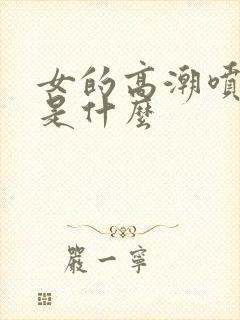 女的高潮喷
是什麼
嚴一寧